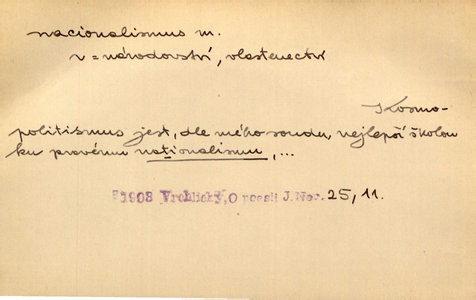 nacionalismus m.
v = národovství, vlastenectví
Kosmo-
politismus jest, dle mého soudu, nejlepší školou
ku pravému nationalismu, ...
1903 Vrchlický, O poesii J. Ner. 25, 11.